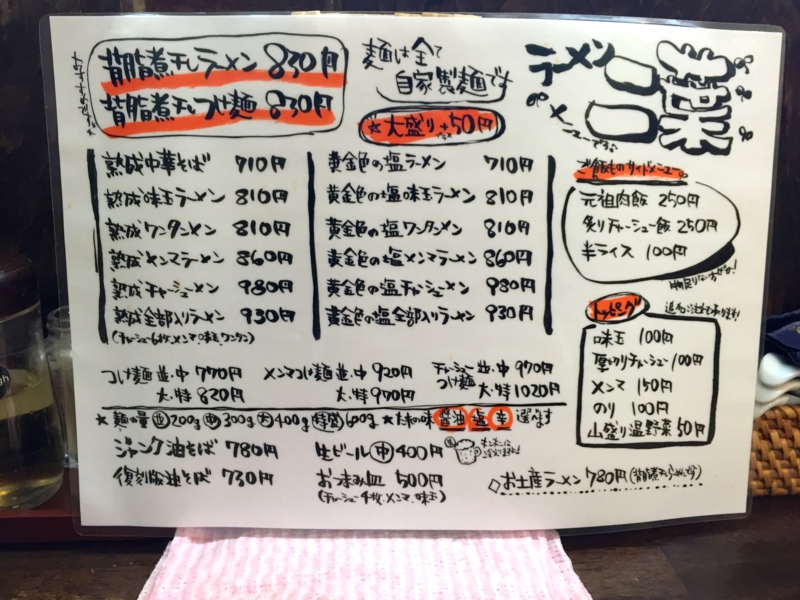 背脂煮干しラーメン 830円
背脂煮干しつけ麺 830円
麺は全て
自家製麺です
★大盛り+50円
ラーメン
メニューです。
熟成中華そば 710円
熟成味玉ラーメン 810円
熟成ワンタンメン 810円
熟成メンマラーメン 860円
熟成チャーシューメン 980円
熟成全部入りラーメン 930円
(チャーシュー6枚、メンマ、味玉、ワンタン)
黄金色の塩ラーメン 710円
黄金色の塩味玉ラーメン 810円
黄金色の塩ワンタンメン 810円
黄金色の塩メンマラーメン 860円
黄金色の塩チャーシューメン 980円
黄金色の塩全部入りラーメン 930円
ご飯ものサイドメニュー
元祖肉飯 250円
炙りチャーシュー飯 250円
半ライス 100円
トッピング
味玉 100円
厚切りチャーシュー 100円
メンマ 150円
のり 100円
山盛り温野菜 50円
つけ麺 並・中 770円
大・特 820円
メンマつけ麺 並・中 920円
大・特 970円
チャーシューつけ麺 並・中 970円
大・特 1020円
★麺の量 並200g 中300g 大400g 特盛600g ★たれの味 醤油 塩 辛 選べます
ジャンク油そば 780円
復刻版油そば 730円
生ビール 中 400円
おつまみ皿 500円
(チャーシュー4枚、メンマ、味玉)
◇お土産ラーメン 780円